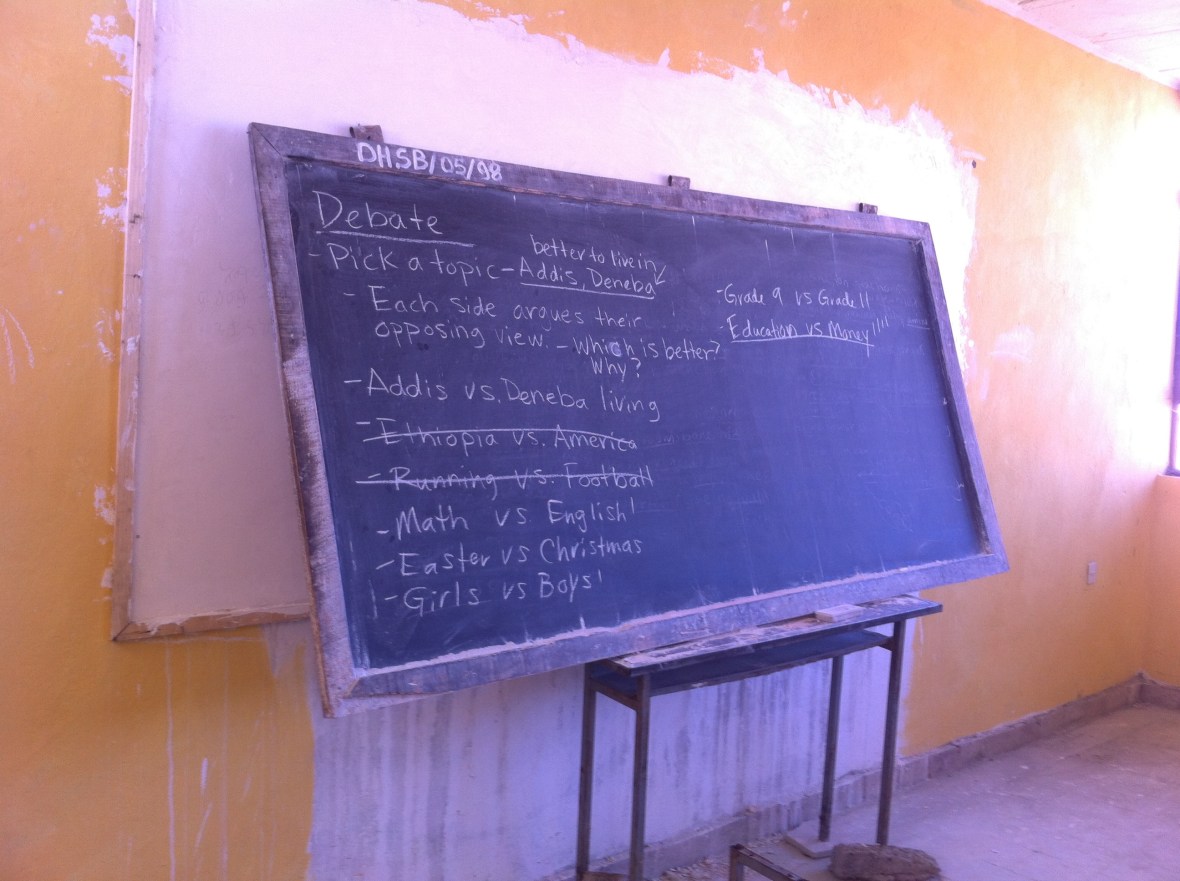 DHSB/05/98
Debate
better to live in
- Pick a topic - Addis, Deneba
- Each side argues their
opposing view. - Which is better?
Why?
- Addis vs. Deneba living
- Ethiopia vs. America
- Running vs. Football
- Math vs English
- Easter vs Christmas
- Girls vs Boys
- Grade 9 vs Grade 11
- Education vs Money